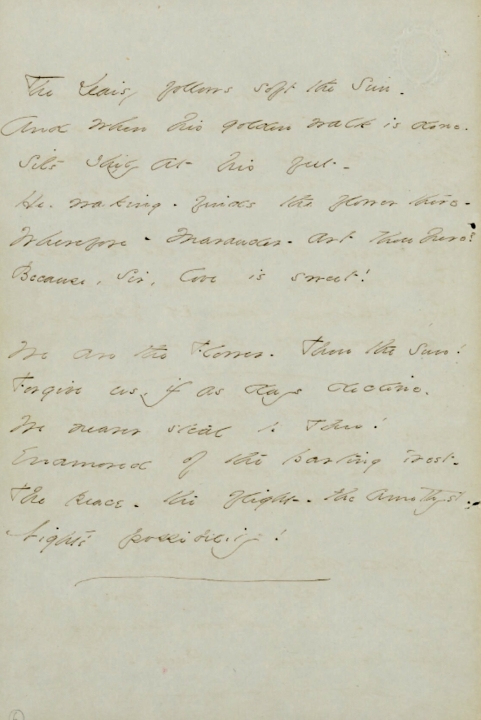 The Daisy follows soft the Sun -
And when his golden walk is done -
Sits shily at his feet -
He - waking - finds the flower there -
Wherefore - Marauder - art thou here?
Because, Sir, love is sweet!

We are the Flower - Thou the Sun!
Forgive us, if as days decline -
We nearer steal to Thee!
Enamored of the parting West -
The peace - the flight - the Amethyst -
Night's possibility!